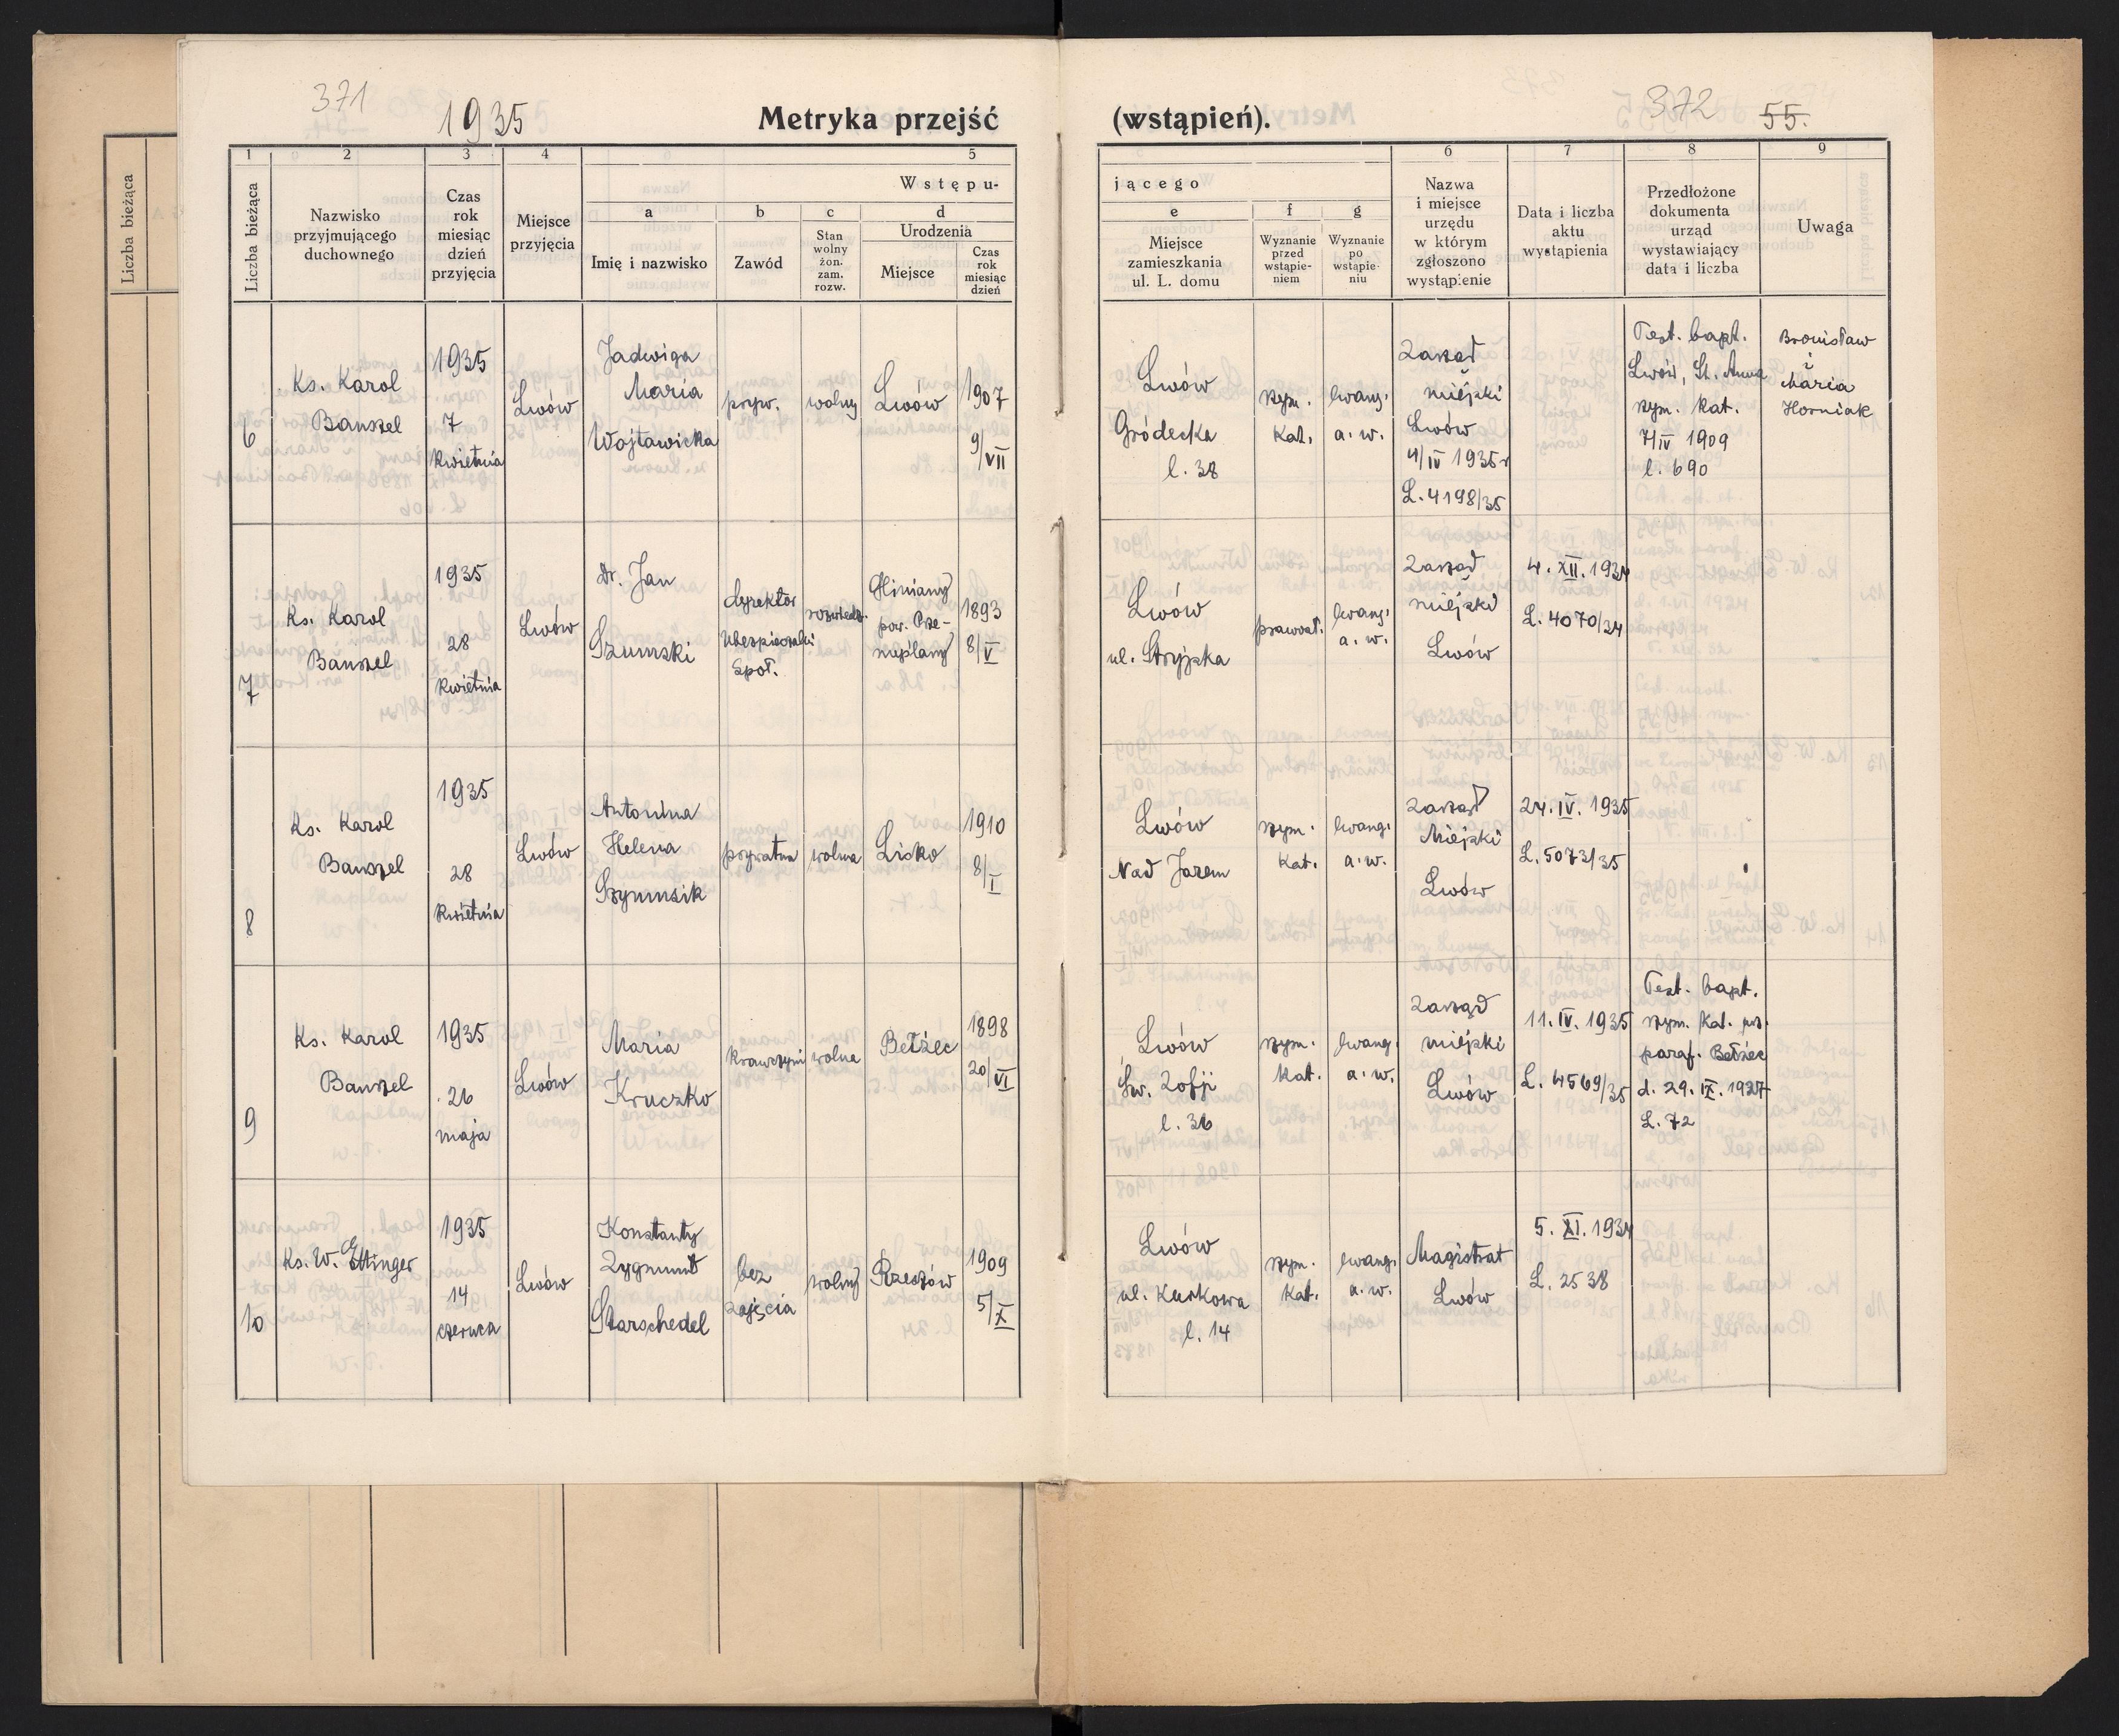 371
1935
Metryka przejść
(wstąpień).
372
55.
Liczba bieżąca
1
2
3
4
5
Liczba bieżąca
Nazwisko
przyjmującego
duchownego
Czas
rok
miesiąc
dzień
przyjęcia
Miejsce
przyjęcia
Wstępu-
a
Imię i nazwisko
b
Zawód
c
Stan
wolny
żon.
zam.
rozw.
d
Urodzenia
Miejsce
Czas
rok
miesiąc
dzień
jącego
e
Miejsce
zamieszkania
ul. L. domu
f
Wyznanie
przed
wstąpie-
niem
g
Wyznanie
po
wstąpie-
niu
6
Nazwa
i miejsce
urzędu
w którym
zgłoszono
wystąpienie
7
Data i liczba
aktu
wystąpienia
8
Przedłożone
dokumenta
urząd
wystawiający
data i liczba
9
Uwaga
6
Ks. Karol
Banszel
1935
7
kwietnia
Lwów
Jadwiga
Maria
Wojtawicka
pryw.
wolny
Lwów
1907
9/VII
Lwów
Gródecka
l. 38
rzym.
kat.
ewang.
a. w.
Zarząd
miejski
Lwów
4/IV 1935 r
L. 4198/35
Test. bapt.
Lwów, St. Anna
rzym. kat.
7/IV 1909
l. 690
Bronisław
i
Maria
Horniak
7
Ks. Karol
Banszel
1935
28
kwietnia
Lwów
Dr. Jan
Szumski
dyrektor
Ubezpieczalni
Społ.
rozwiedz.
Gliniany
pow. Prze-
myślany
1893
8/V
Lwów
ul. Stryjska
prawosł.
ewang.
a. w.
Zarząd
miejski
Lwów
4. XII. 1934
L. 4070/34
8
Ks. Karol
Banszel
1935
28
kwietnia
Lwów
Antonina
Helena
Szymusik
prywatna
wolna
Lisko
1910
8/I
Lwów
Nad Jarem
rzym.
kat.
ewang.
a. w.
Zarząd
Miejski
Lwów
24. IV. 1935
L. 5073/35
9
Ks. Karol
Banszel
1935
26
maja
Lwów
Maria
Kruczko
krawczyni
wolna
Bełżec
1898
20/VI
Lwów
Św. Zofji
l. 36
rzym.
kat.
ewang.
a. w.
Zarząd
miejski
Lwów
11. IV. 1935
L. 4569/35
Test. bapt.
rzym. kat. urz.
paraf. Bełżec
d. 29. IX. 1927
L. 72
10
Ks. W. Ettinger
1935
14
czerwca
Lwów
Konstanty
Zygmunt
Starschedel
bez
zajęcia
wolny
Rzeszów
1909
5/X
Lwów
ul. Kurkowa
l. 14
rzym.
kat.
ewang.
a. w.
Magistrat
Lwów
5. XI. 1934
L. 2538